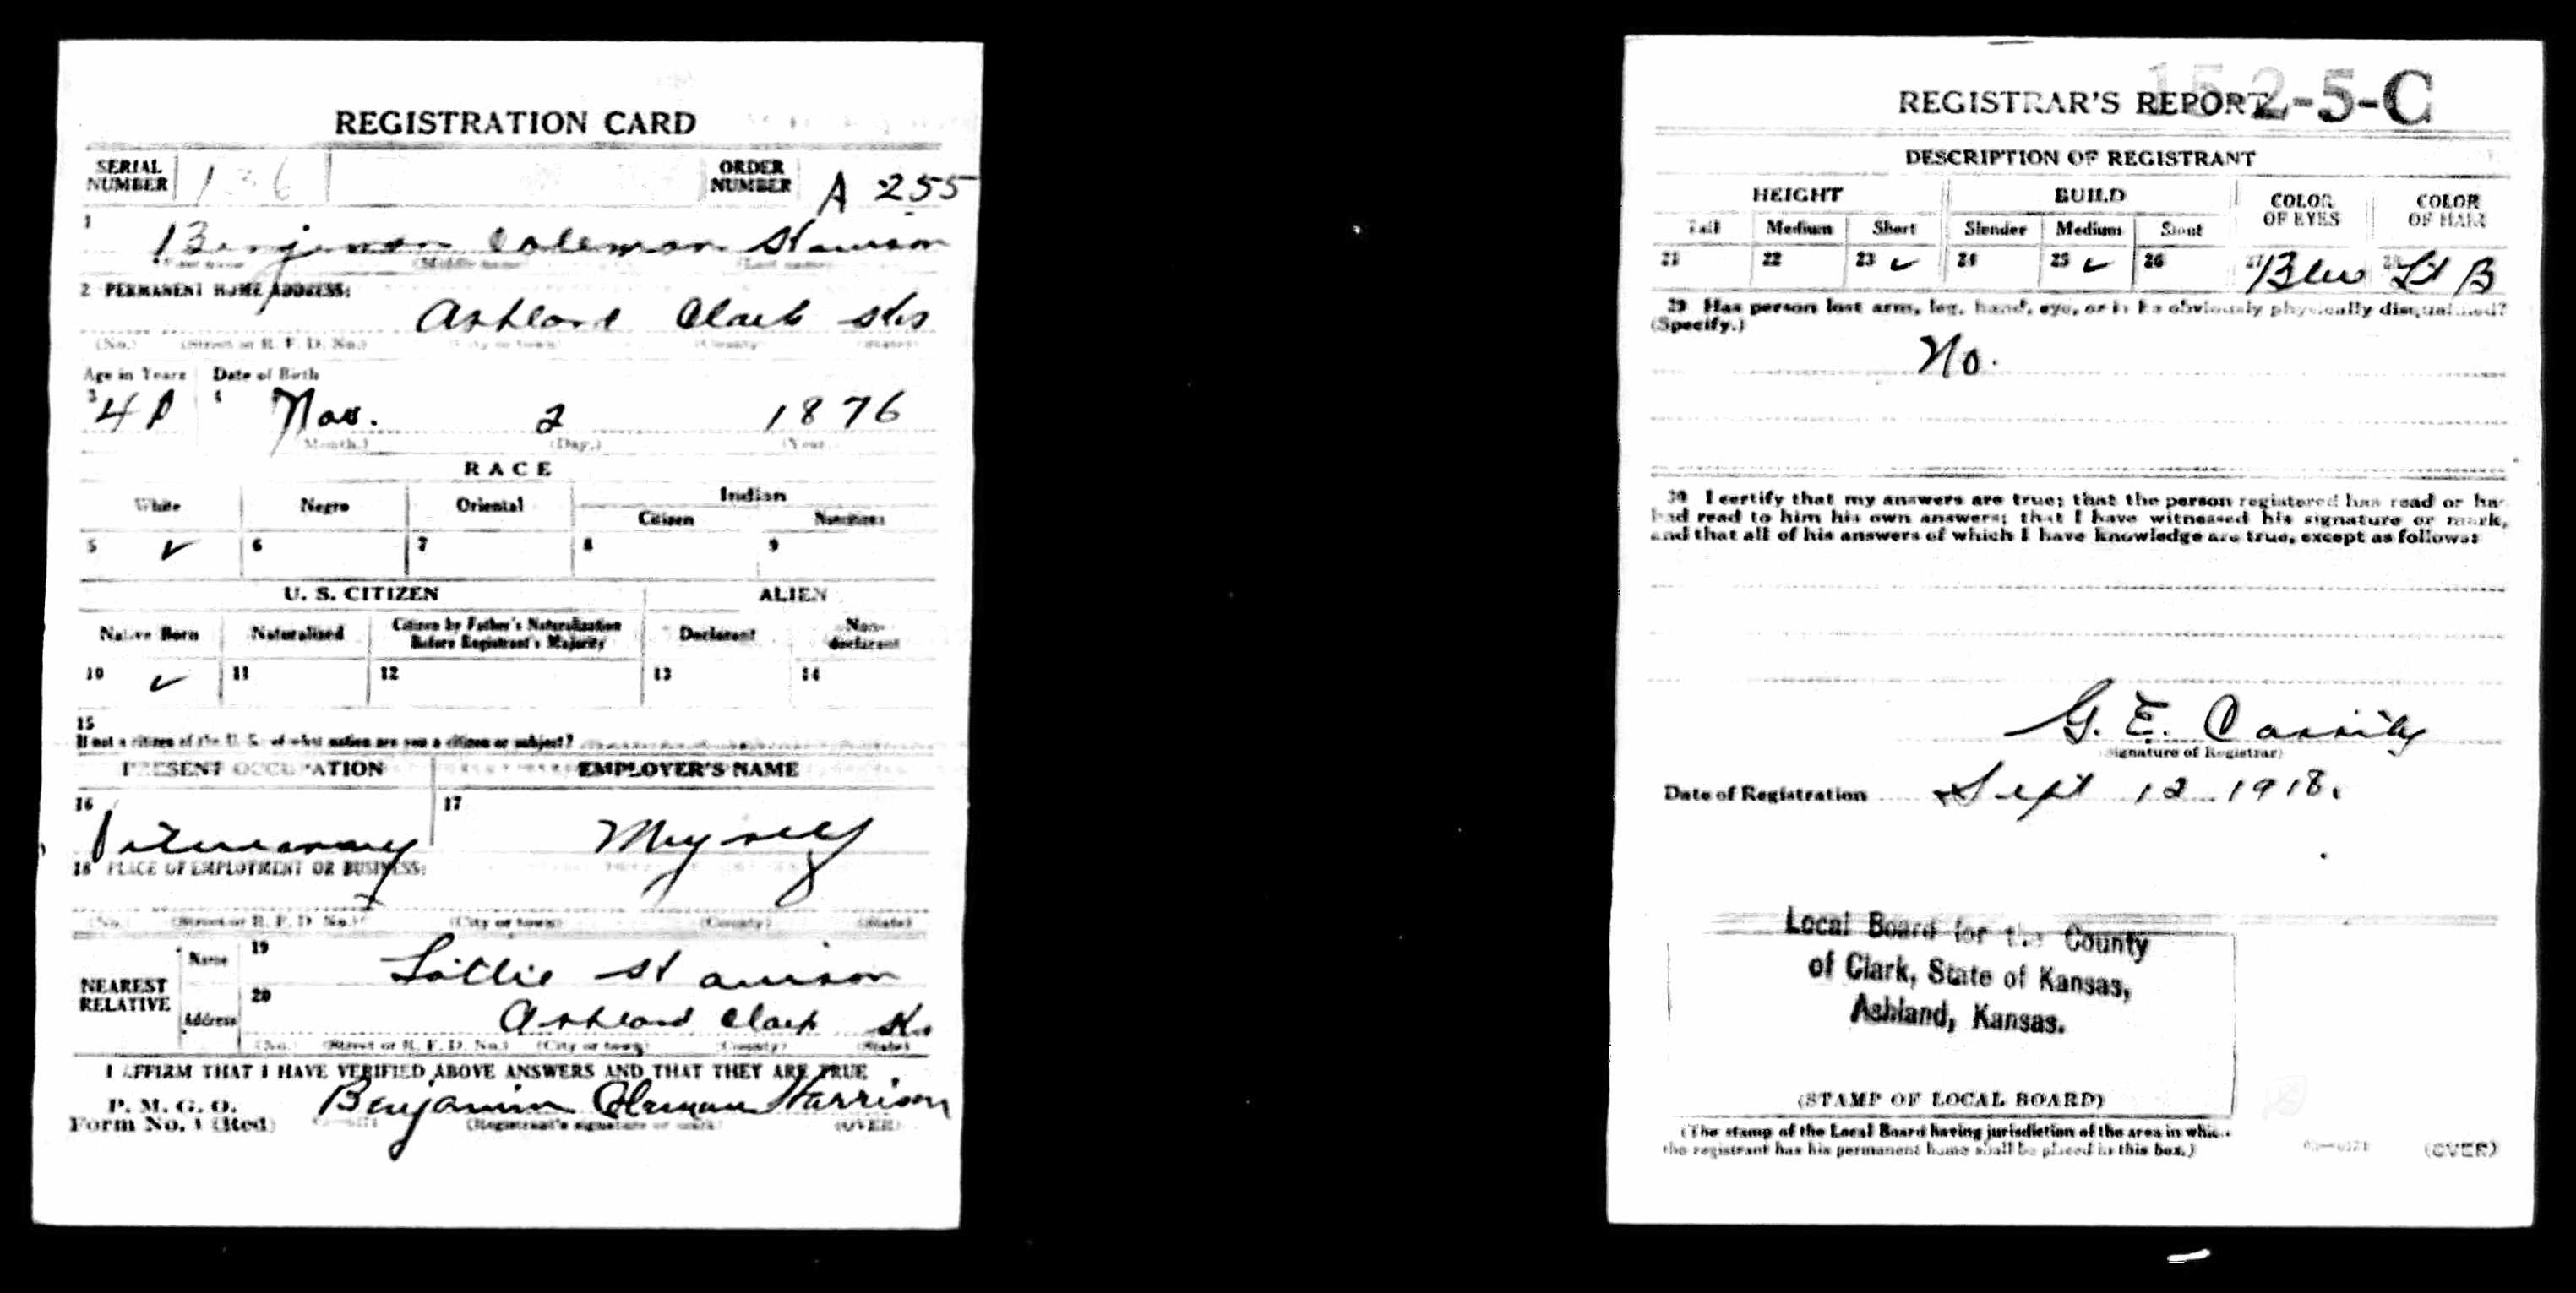 REGISTRATION CARD
SERIAL NUMBER 136 ORDER NUMBER A 255
1 Benjamin Coleman Harrison
(First name) (Middle name) (Last name)
2 PERMANENT HOME ADDRESS:
Ashland Clark Ks
(No.) (Street or R. F. D. No.) (City or town) (County) (State)
Age in Years Date of Birth
3 4 Nov. 2 1876
(Month.) (Day.) (Year.
RACE
White Negro Oriental Indian
Citizen Noncitizen
5 ✓ 6 7 8 9
U. S. CITIZEN ALIEN
Native Born Naturalized Citizen by Father's Naturalization Before Registrant's Majority Declarant Non-declarant
10 ✓ 11 12 13 14
15
If not a citizen of the U. S., of what nation are you a citizen or subject?
PRESENT OCCUPATION EMPLOYER'S NAME
16 17
Veterinary Myself
18 PLACE OF EMPLOYMENT OR BUSINESS:
(No.) (Street or R. F. D. No.) (City or town) (County) (State)
NEAREST RELATIVE
Name 19 Lillie Harrison
Address 20 Ashland Clark Ks
(No.) (Street or R. F. D. No.) (City or town) (County) (State)
I AFFIRM THAT I HAVE VERIFIED ABOVE ANSWERS AND THAT THEY ARE TRUE
P. M. G. O.
Form No. 1 (Red) Benjamin Coleman Harrison
(Registrant's signature or mark) (OVER)
REGISTRAR'S REPORT 15-2-5-C
DESCRIPTION OF REGISTRANT
HEIGHT BUILD COLOR OF EYES COLOR OF HAIR
Tall Medium Short Slender Medium Stout
21 22 23 ✓ 24 25 ✓ 26 27 Blue 28 Lt B
29 Has person lost arm, leg, hand, eye, or is he obviously physically disqualified?
(Specify.)
No.
30 I certify that my answers are true; that the person registered has read or has
had read to him his own answers; that I have witnessed his signature or mark,
and that all of his answers of which I have knowledge are true, except as follows:
G. E. Cassity
(Signature of Registrar)
Date of Registration Sept 12 1918.
Local Board for the County
of Clark, State of Kansas,
Ashland, Kansas.
(STAMP OF LOCAL BOARD)
(The stamp of the Local Board having jurisdiction of the area in which
the registrant has his permanent home shall be placed in this box.)
(OVER)